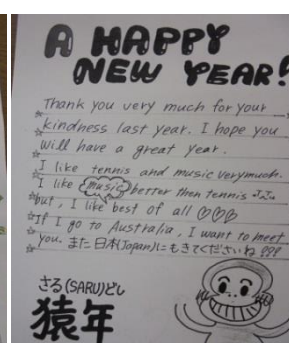 A HAPPY
NEW YEAR!
Thank you very much for your
kindness last year. I hope you
will have a great year.
I like tennis and music verymuch.
I like music better then tennis ♪♪♪
but, I like best of all ♡♡♡
If I go to Australia, I want to meet
you. また日本(Japan)にもきてくださいね !!!
さる(SARU)どし
猿年